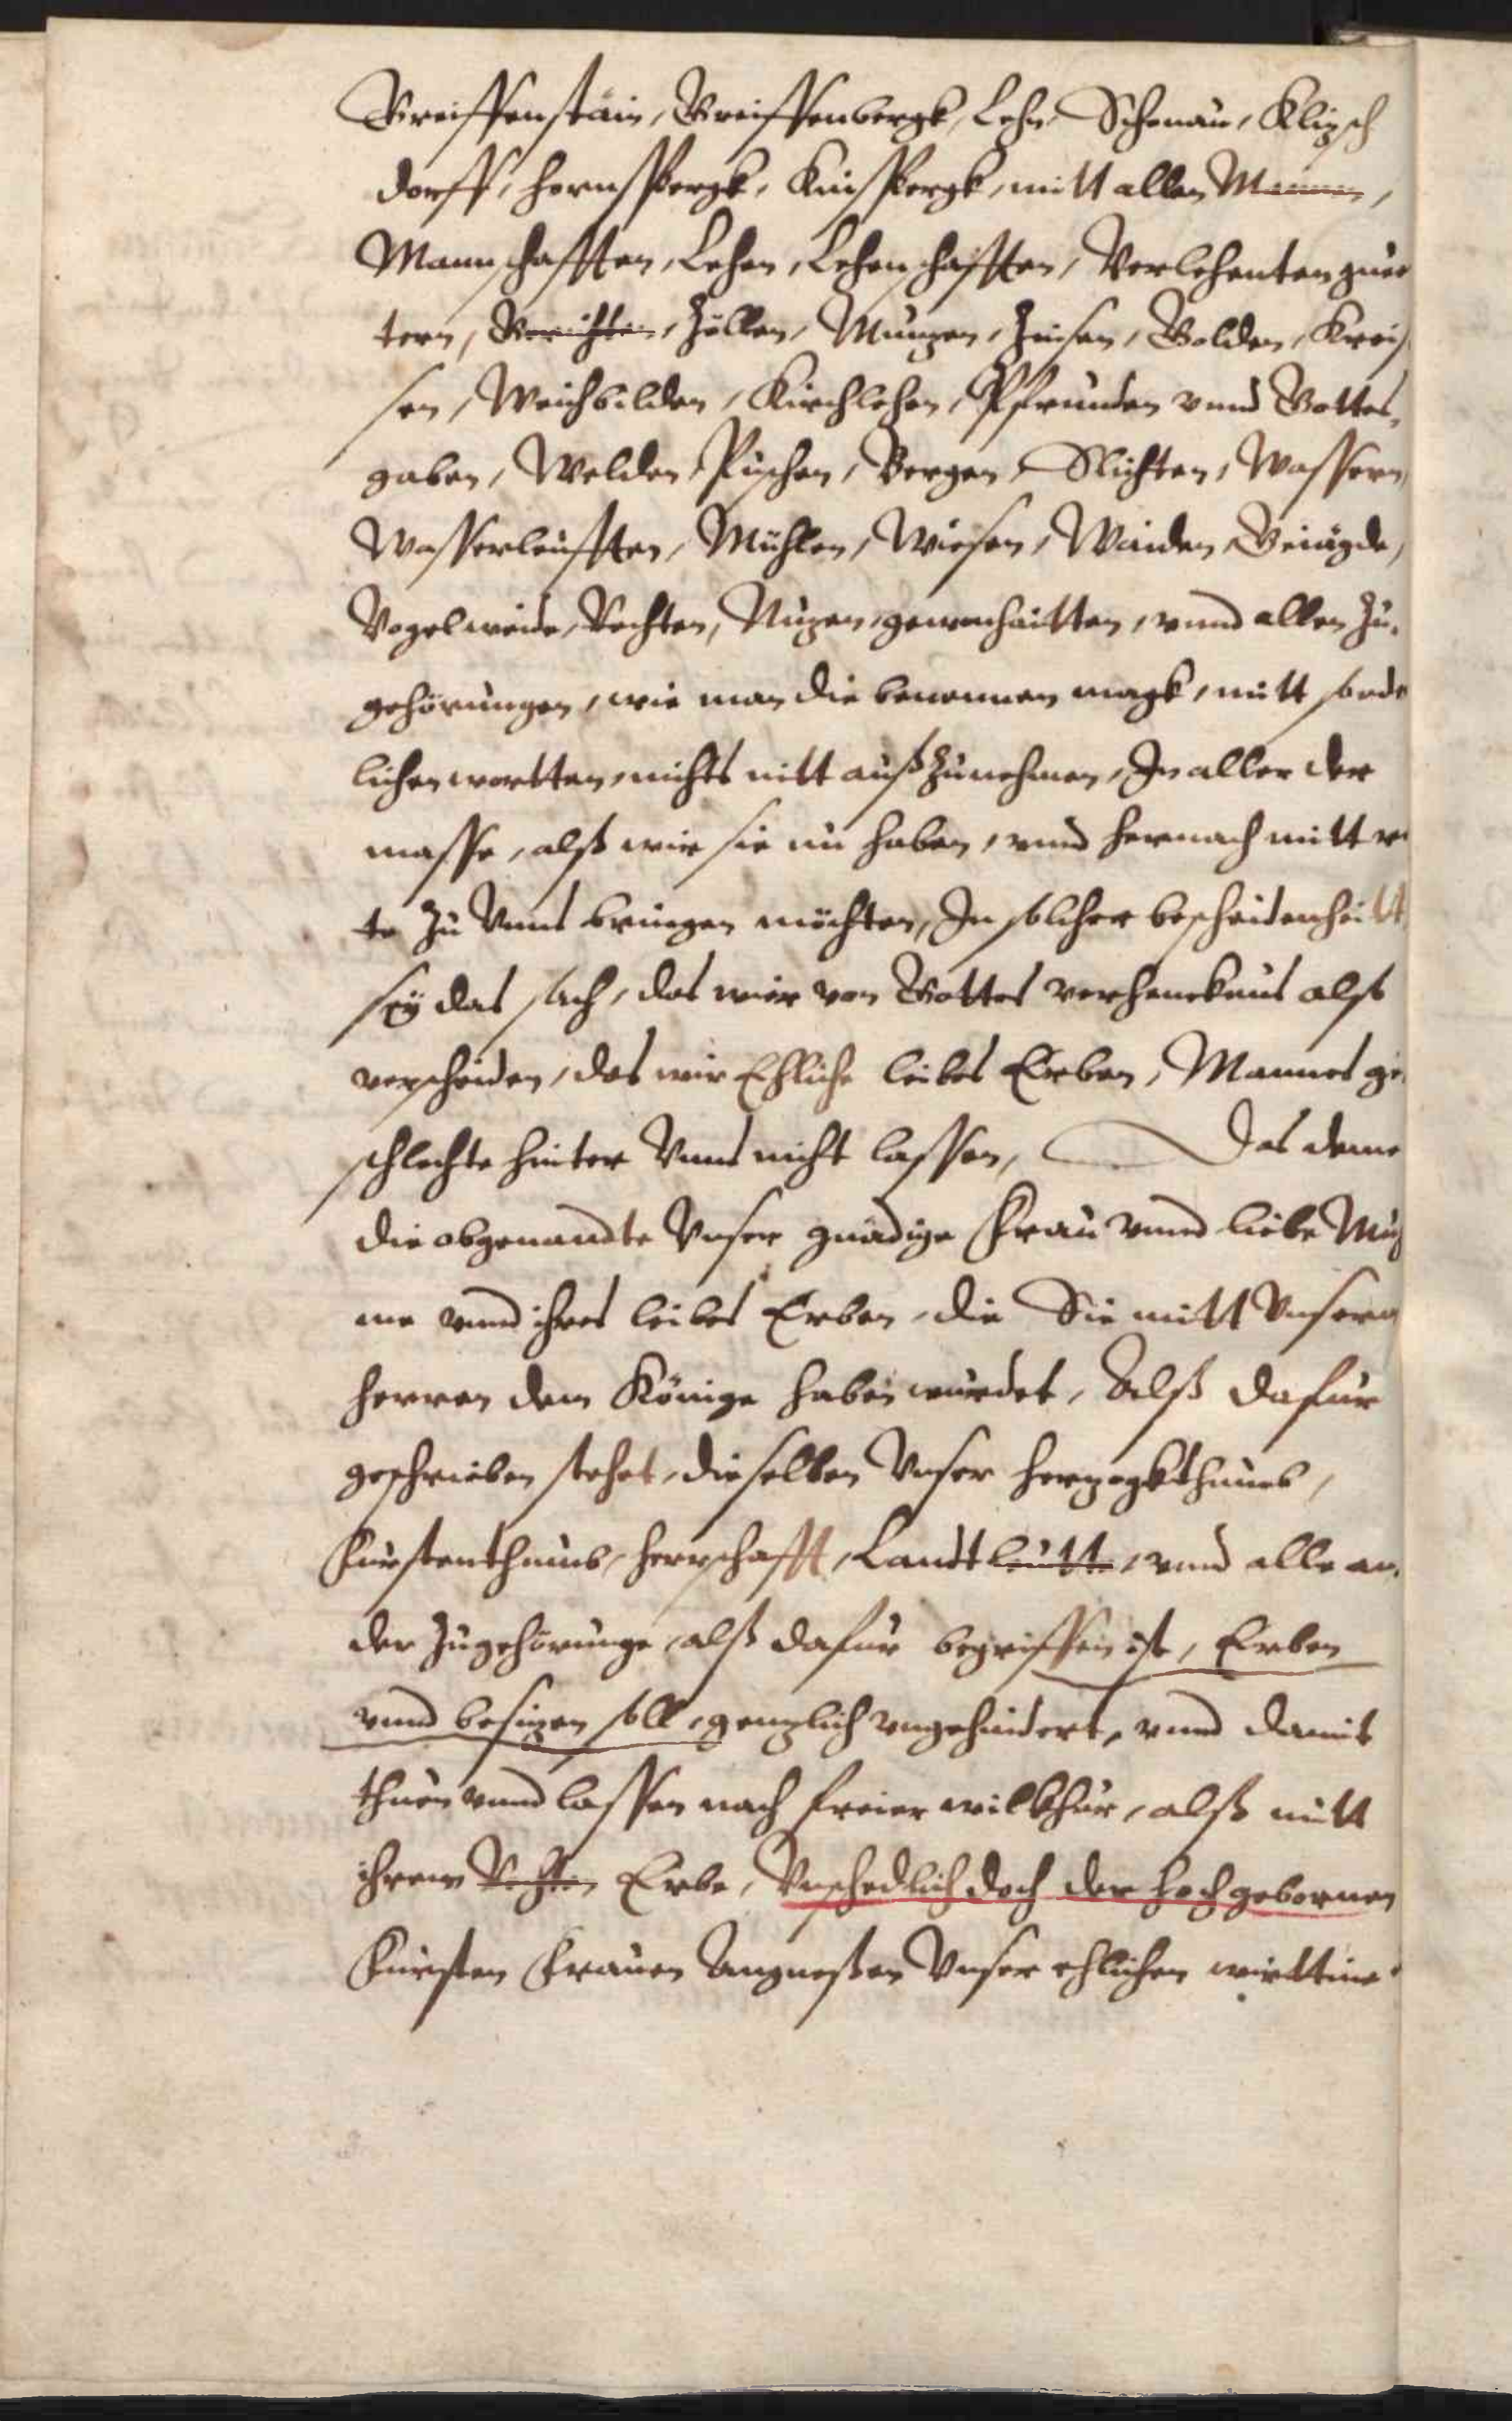 Greiffenstain, Greiffenbergk, Lehn Schonau, Klizsch
dorff, hornsspergk, Kinsspergk, mitt allen Mannen,
Mannschafften, Lehen, Lehenschafften, Verlehenten guet
tern, Gerichten, Zöllen, Munzen, Zinsen, Golden, Kreis
sen, Weichbilden, Kirchlehen, Pfrunden vnnd Gottes,
gaben, Welden, Puschen, Bergen, Slichten, Wassern,
Wasserleufften, Mühlen, Wiesen, Waiden, Geiägde,
Vogelweide, Rechten, Nuzen, gewonhaitten, vnnd allen Zu,
gehörungen, wie man die benennen magk, mitt sonde
lichen wortten, nichts nitt auß Zunehmen, In aller der
masse, alß wir sie nu haben, vnnd hernach mitt re
te Zu Vnns bringen möchten, In solcher bescheidenheitt,
sey das sach, das wier von Gottes verhencknus alß
verscheiden, das wir Ehliche leibes Erben, Mannes ge,
schlechte hinter Vnns nicht lassen, Das denne
die obgenandte Vnser gnädige Frau vnnd liebe Muh
me vnnd ihres leibes Erben, die Sie mitt Vnserm
herren dem Könige haben wurdet, Alß dafur
geschrieben stehet, dieselben Vnser herzogkthumb,
Furstenthumb, herrschafft, Landt leutte, vnnd alle an,
der Zugehörunge, alß dafur begriffen ist, Erben
vnnd besizen soll, genzlich vngehindert, vnnd damit
thuen vnnd lassen nach freier wilkhur, alß mitt
ihrem Rechten Erbe, Vnschedlich doch der hochgebornen
Fursten Frauen Angneßen Vnser ehlichen wirttine